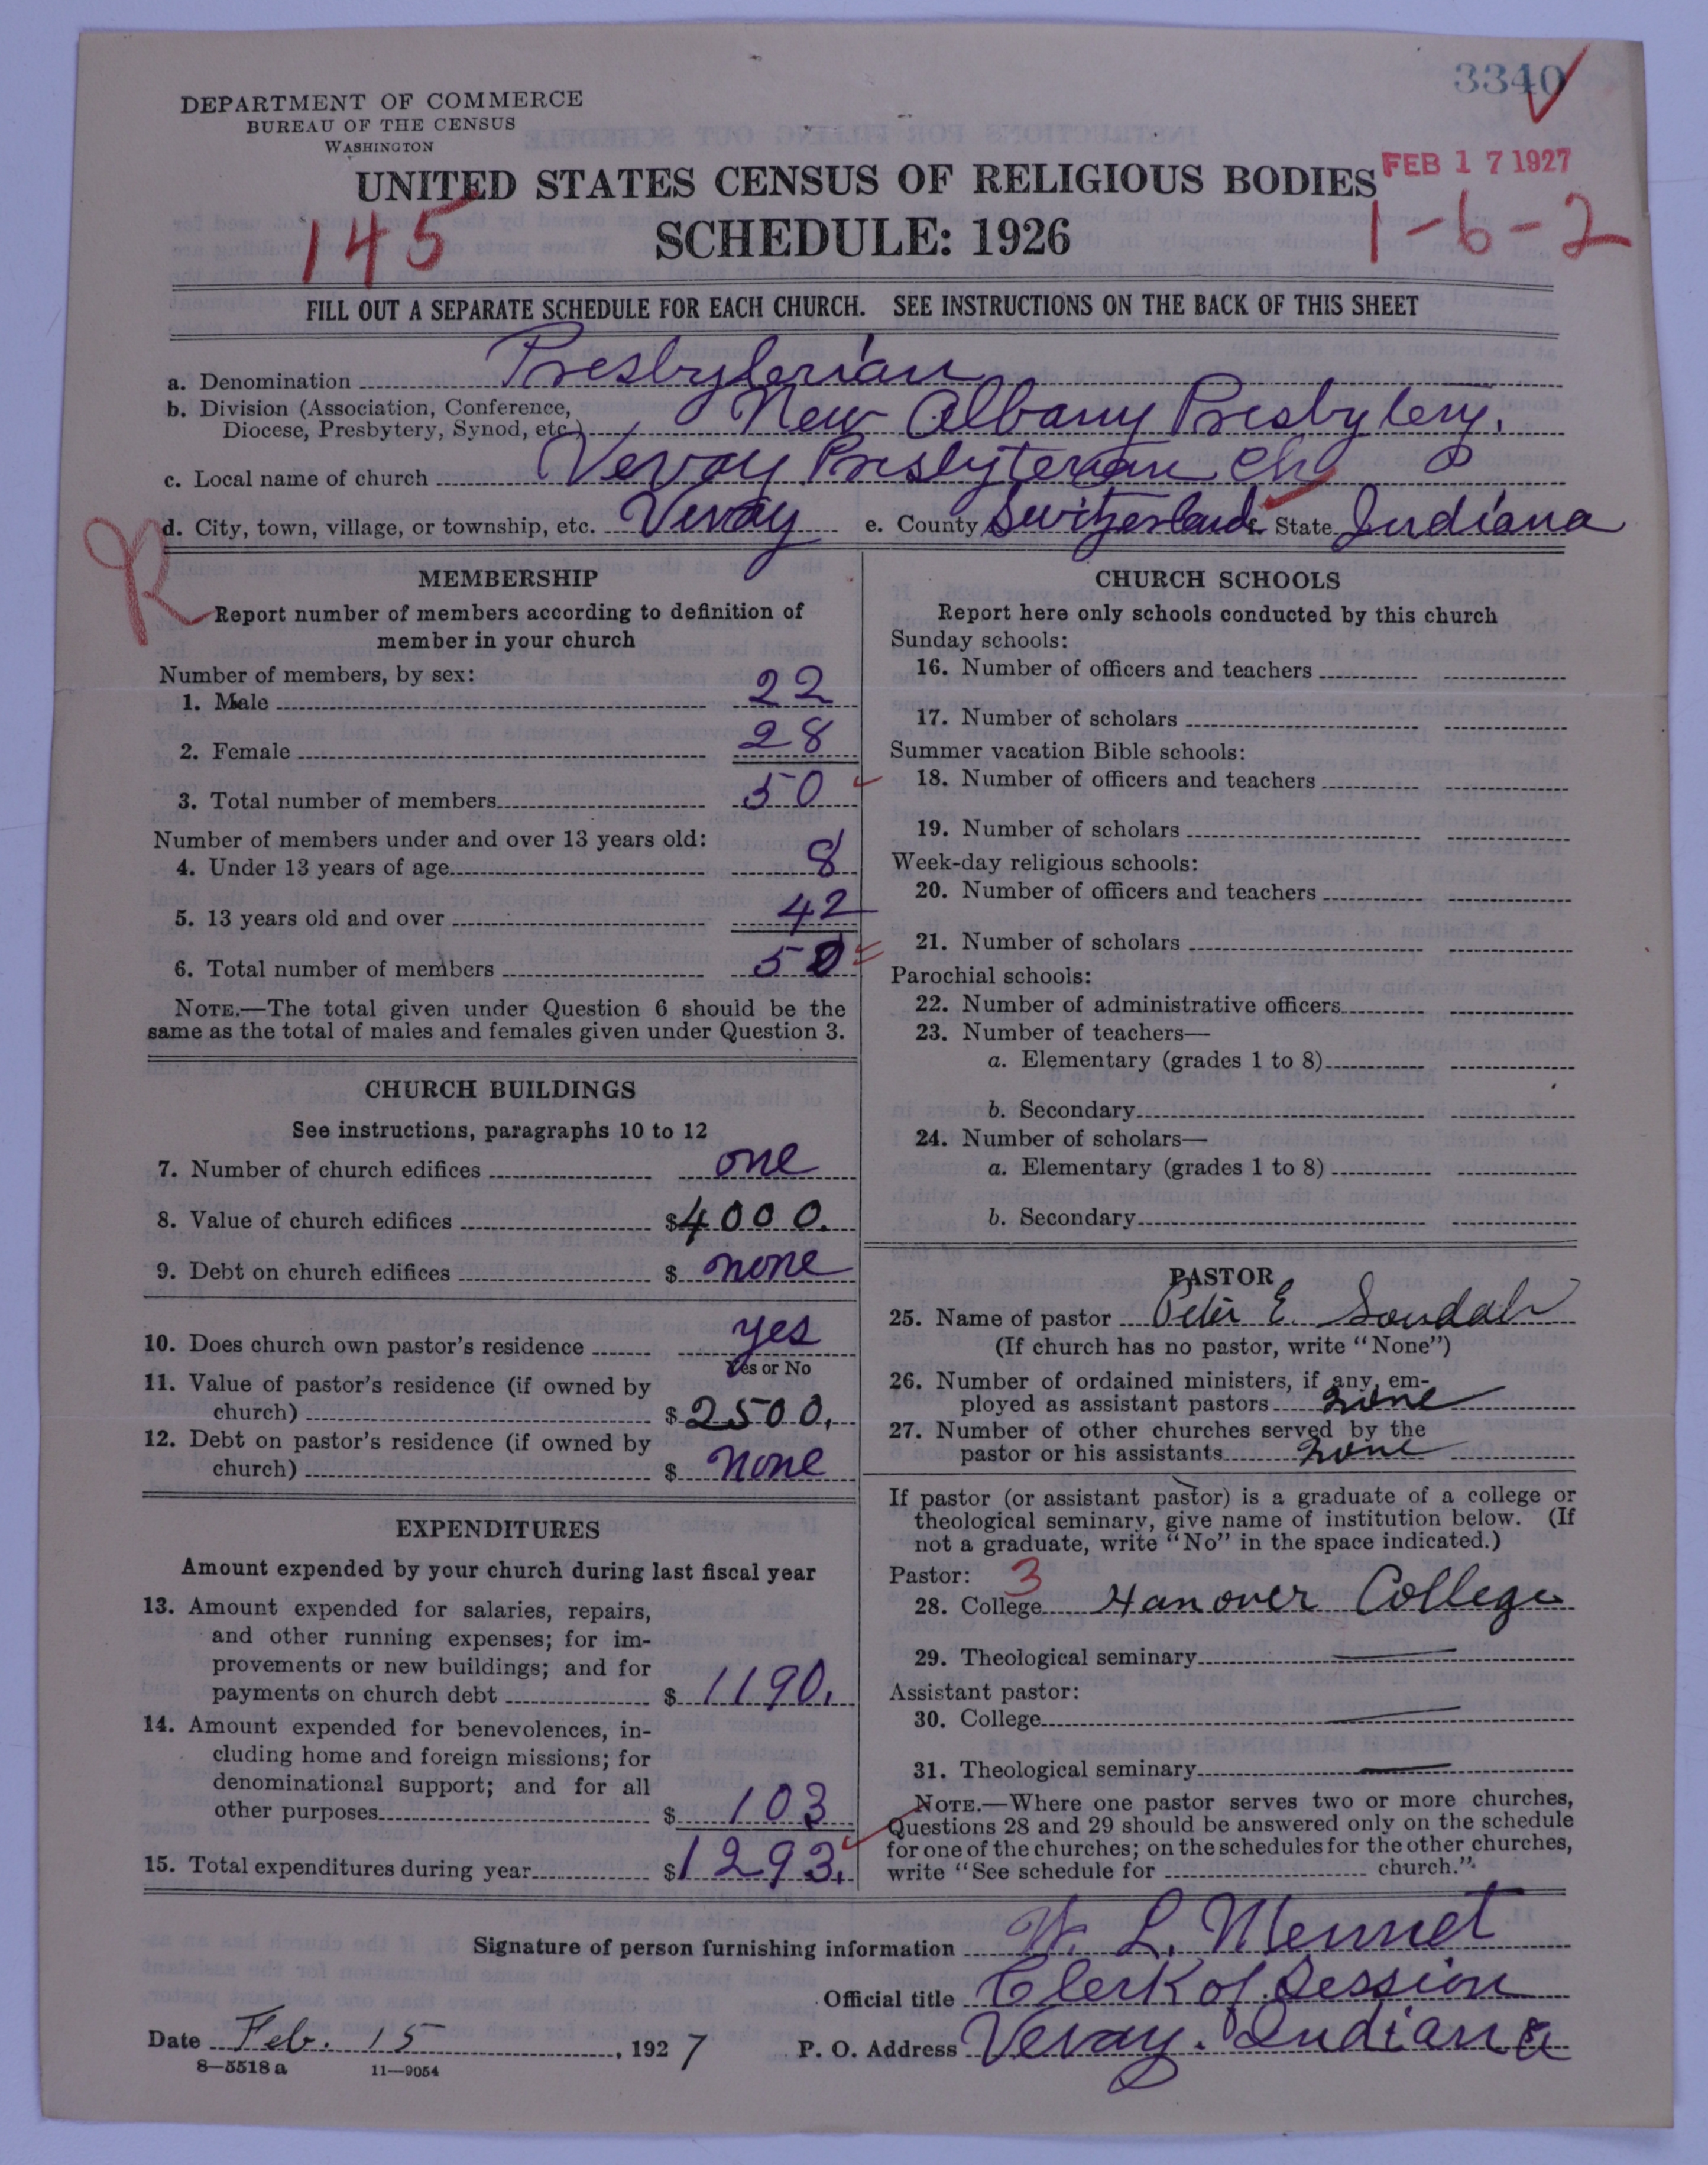 3340
DEPARTMENT OF COMMERCE
BUREAU OF THE CENSUS
WASHINGTON
UNITED STATES CENSUS OF RELIGIOUS BODIES
FEB 17 1927
145
SCHEDULE: 1926
1-6-2
FILL OUT A SEPARATE SCHEDULE FOR EACH CHURCH. SEE INSTRUCTIONS ON THE BACK OF THIS SHEET
a. Denomination Presbyterian
b. Division (Association, Conference,
Diocese, Presbytery, Synod, etc.) New Albany Presbytery.
c. Local name of church Vevay Presbyterian Ch
d. City, town, village, or township, etc. Vevay e. County Switzerland f. State Indiana
R
MEMBERSHIP
Report number of members according to definition of
member in your church
Number of members, by sex:
1. Male 22
2. Female 28
3. Total number of members 50
Number of members under and over 13 years old:
4. Under 13 years of age 8
5. 13 years old and over 42
6. Total number of members 50
NOTE.—The total given under Question 6 should be the
same as the total of males and females given under Question 3.
CHURCH BUILDINGS
See instructions, paragraphs 10 to 12
7. Number of church edifices one
8. Value of church edifices $4000.
9. Debt on church edifices $ none
10. Does church own pastor's residence yes
Yes or No
11. Value of pastor's residence (if owned by
church) $2500.
12. Debt on pastor's residence (if owned by
church) $ none
EXPENDITURES
Amount expended by your church during last fiscal year
13. Amount expended for salaries, repairs,
and other running expenses; for im-
provements or new buildings; and for
payments on church debt $ 1190.
14. Amount expended for benevolences, in-
cluding home and foreign missions; for
denominational support; and for all
other purposes $ 103
15. Total expenditures during year $1293.
CHURCH SCHOOLS
Report here only schools conducted by this church
Sunday schools:
16. Number of officers and teachers
17. Number of scholars
Summer vacation Bible schools:
18. Number of officers and teachers
19. Number of scholars
Week-day religious schools:
20. Number of officers and teachers
21. Number of scholars
Parochial schools:
22. Number of administrative officers
23. Number of teachers—
a. Elementary (grades 1 to 8)
b. Secondary
24. Number of scholars—
a. Elementary (grades 1 to 8)
b. Secondary
PASTOR
25. Name of pastor Peter E.
(If church has no pastor, write "None")
26. Number of ordained ministers, if any, em-
ployed as assistant pastors none
27. Number of other churches served by the
pastor or his assistants none
If pastor (or assistant pastor) is a graduate of a college or
theological seminary, give name of institution below. (If
not a graduate, write "No" in the space indicated.)
Pastor: 3
28. College Hanover College
29. Theological seminary —
Assistant pastor:
30. College —
31. Theological seminary —
NOTE.—Where one pastor serves two or more churches,
Questions 28 and 29 should be answered only on the schedule
for one of the churches; on the schedules for the other churches,
write "See schedule for church."
Signature of person furnishing information W. L. Mennet
Official title Clerk of Session
Date Feb. 15, 1927 P. O. Address Vevay. Indiana
8—5518 a 11—9054